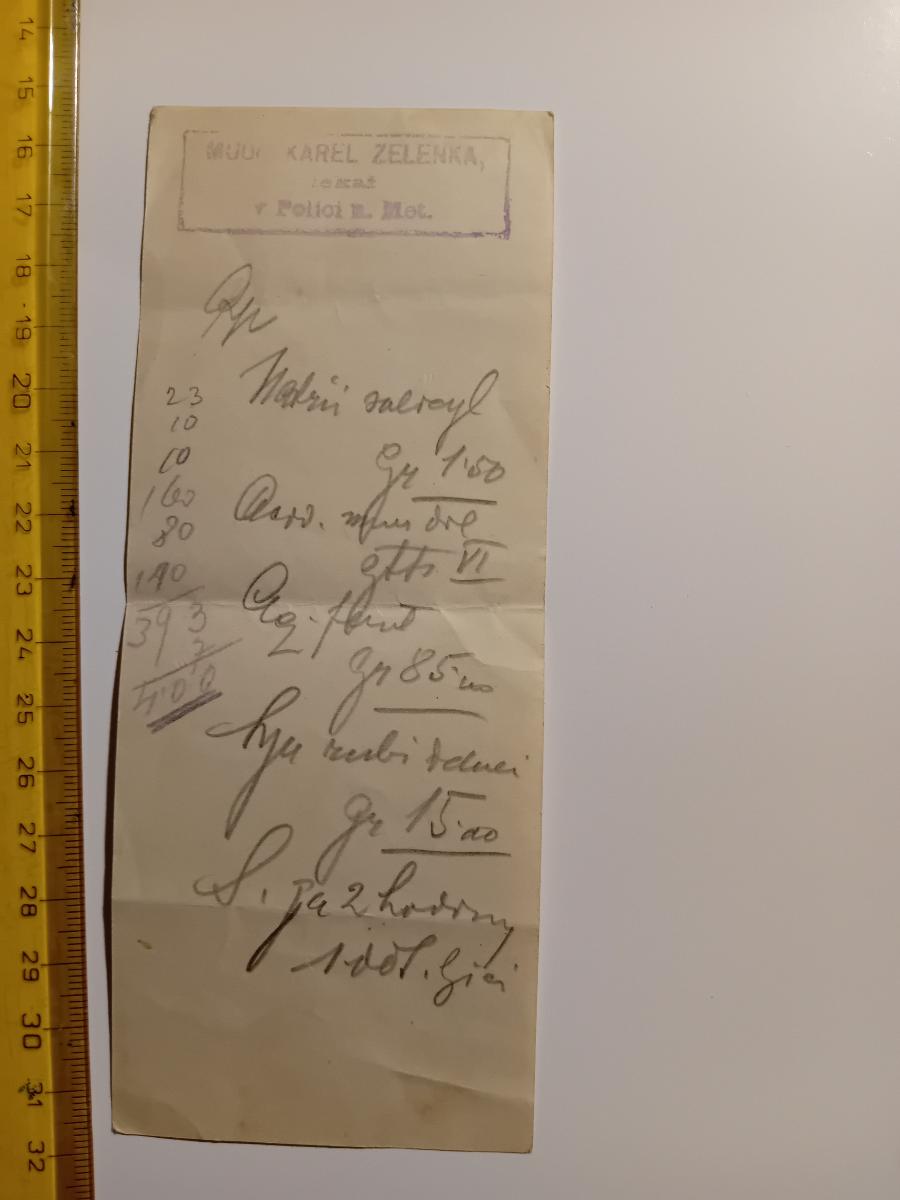 MUDr KAREL ZELENKA,
lékař
v Polici n. Met.
Rp
Natrii salicyl
gr 1·50
23
10
10
160
80
190
393
7
4·00
Acid. mur dil
gtts VI
Aq. font
gr 85·00
Syr rubi idaei
gr 15·00
S. Za 2 hodiny
1 dět. lžíci
14
15
16
17
18
19
20
21
22
23
24
25
26
27
28
29
30
31
32